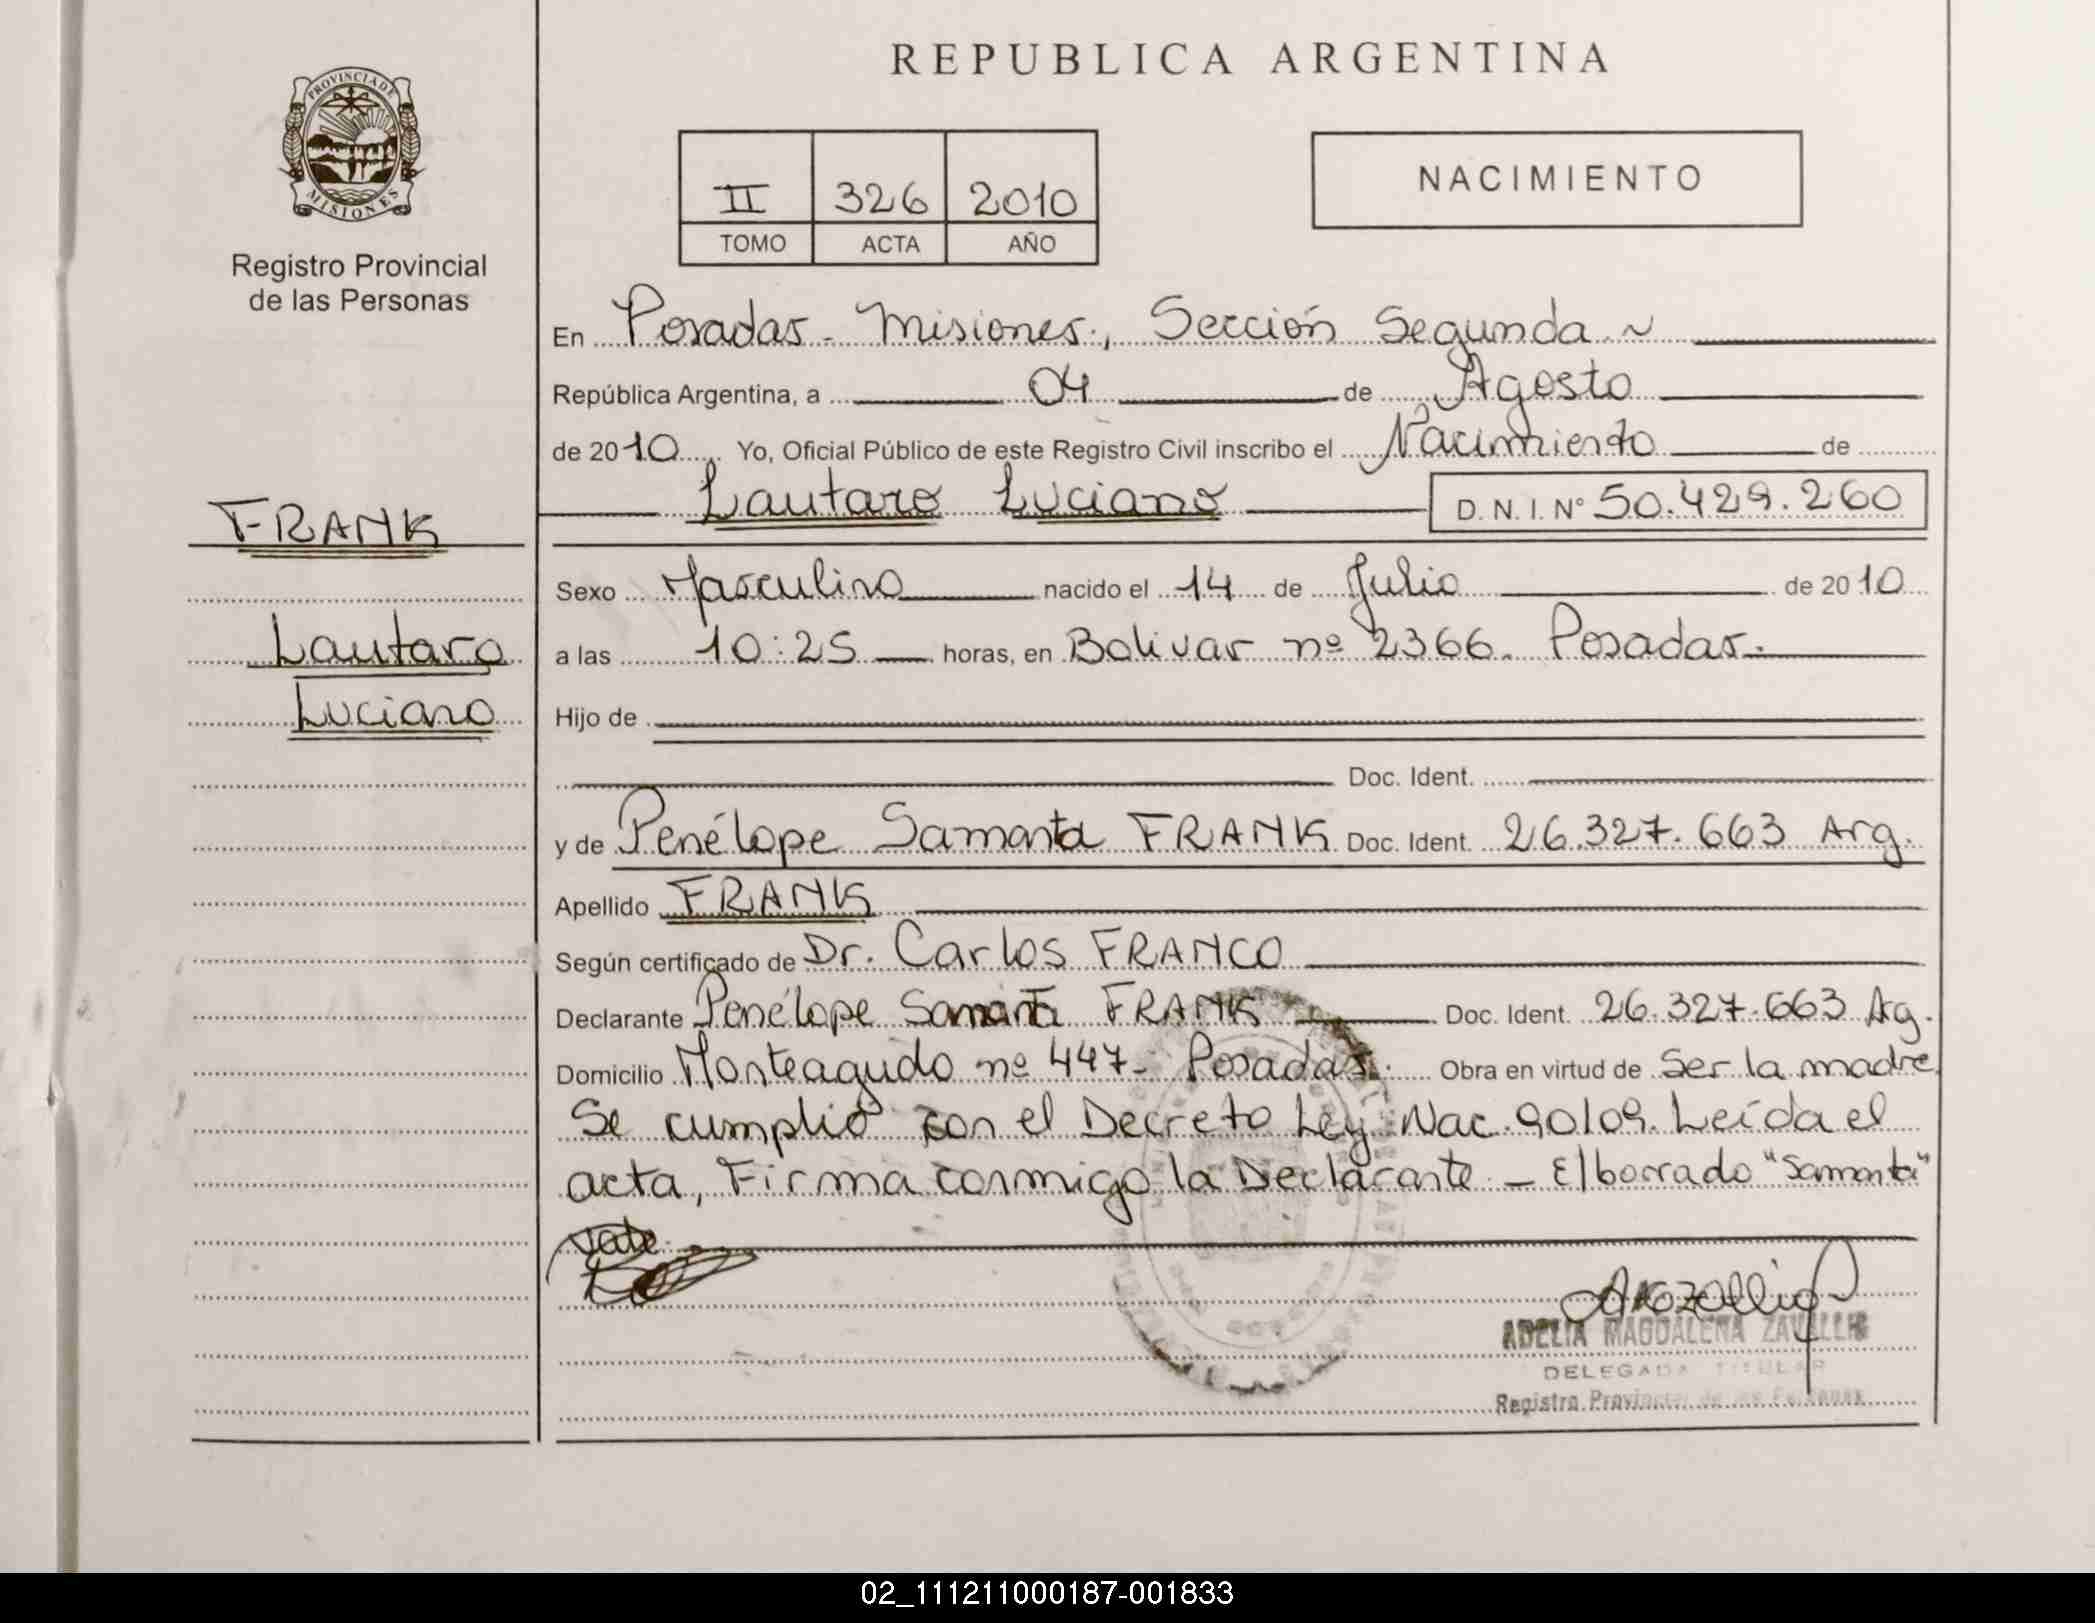 REPUBLICA ARGENTINA
PROVINCIA DE
MISIONES
Registro Provincial
de las Personas
II 326 2010
TOMO ACTA AÑO
NACIMIENTO
En Posadas - Misiones, Sección Segunda
República Argentina, a 04 de Agosto
de 2010 Yo, Oficial Público de este Registro Civil inscribo el Nacimiento de
Lautaro Luciano D. N. I. Nº 50.429.260
FRANK
Lautaro
Luciano
Sexo Masculino nacido el 14 de Julio de 2010
a las 10:25 horas, en Bolivar nº 2366. Posadas.
Hijo de
Doc. Ident.
y de Penélope Samanta FRANK Doc. Ident. 26.327.663 Arg.
Apellido FRANK
Según certificado de Dr. Carlos FRANCO
Declarante Penélope Samanta FRANK Doc. Ident. 26.327.663 Arg.
Domicilio Monteagudo nº 447 - Posadas. Obra en virtud de Ser la madre
Se cumplió con el Decreto Ley Nac. 90/09. Leída el
acta, Firma conmigo la Declarante - El borrado "Samanta"
Vale.
ADELIA MAGDALENA
DELEGADA TITULAR
Registro Provincial de las Personas
02_111211000187-001833